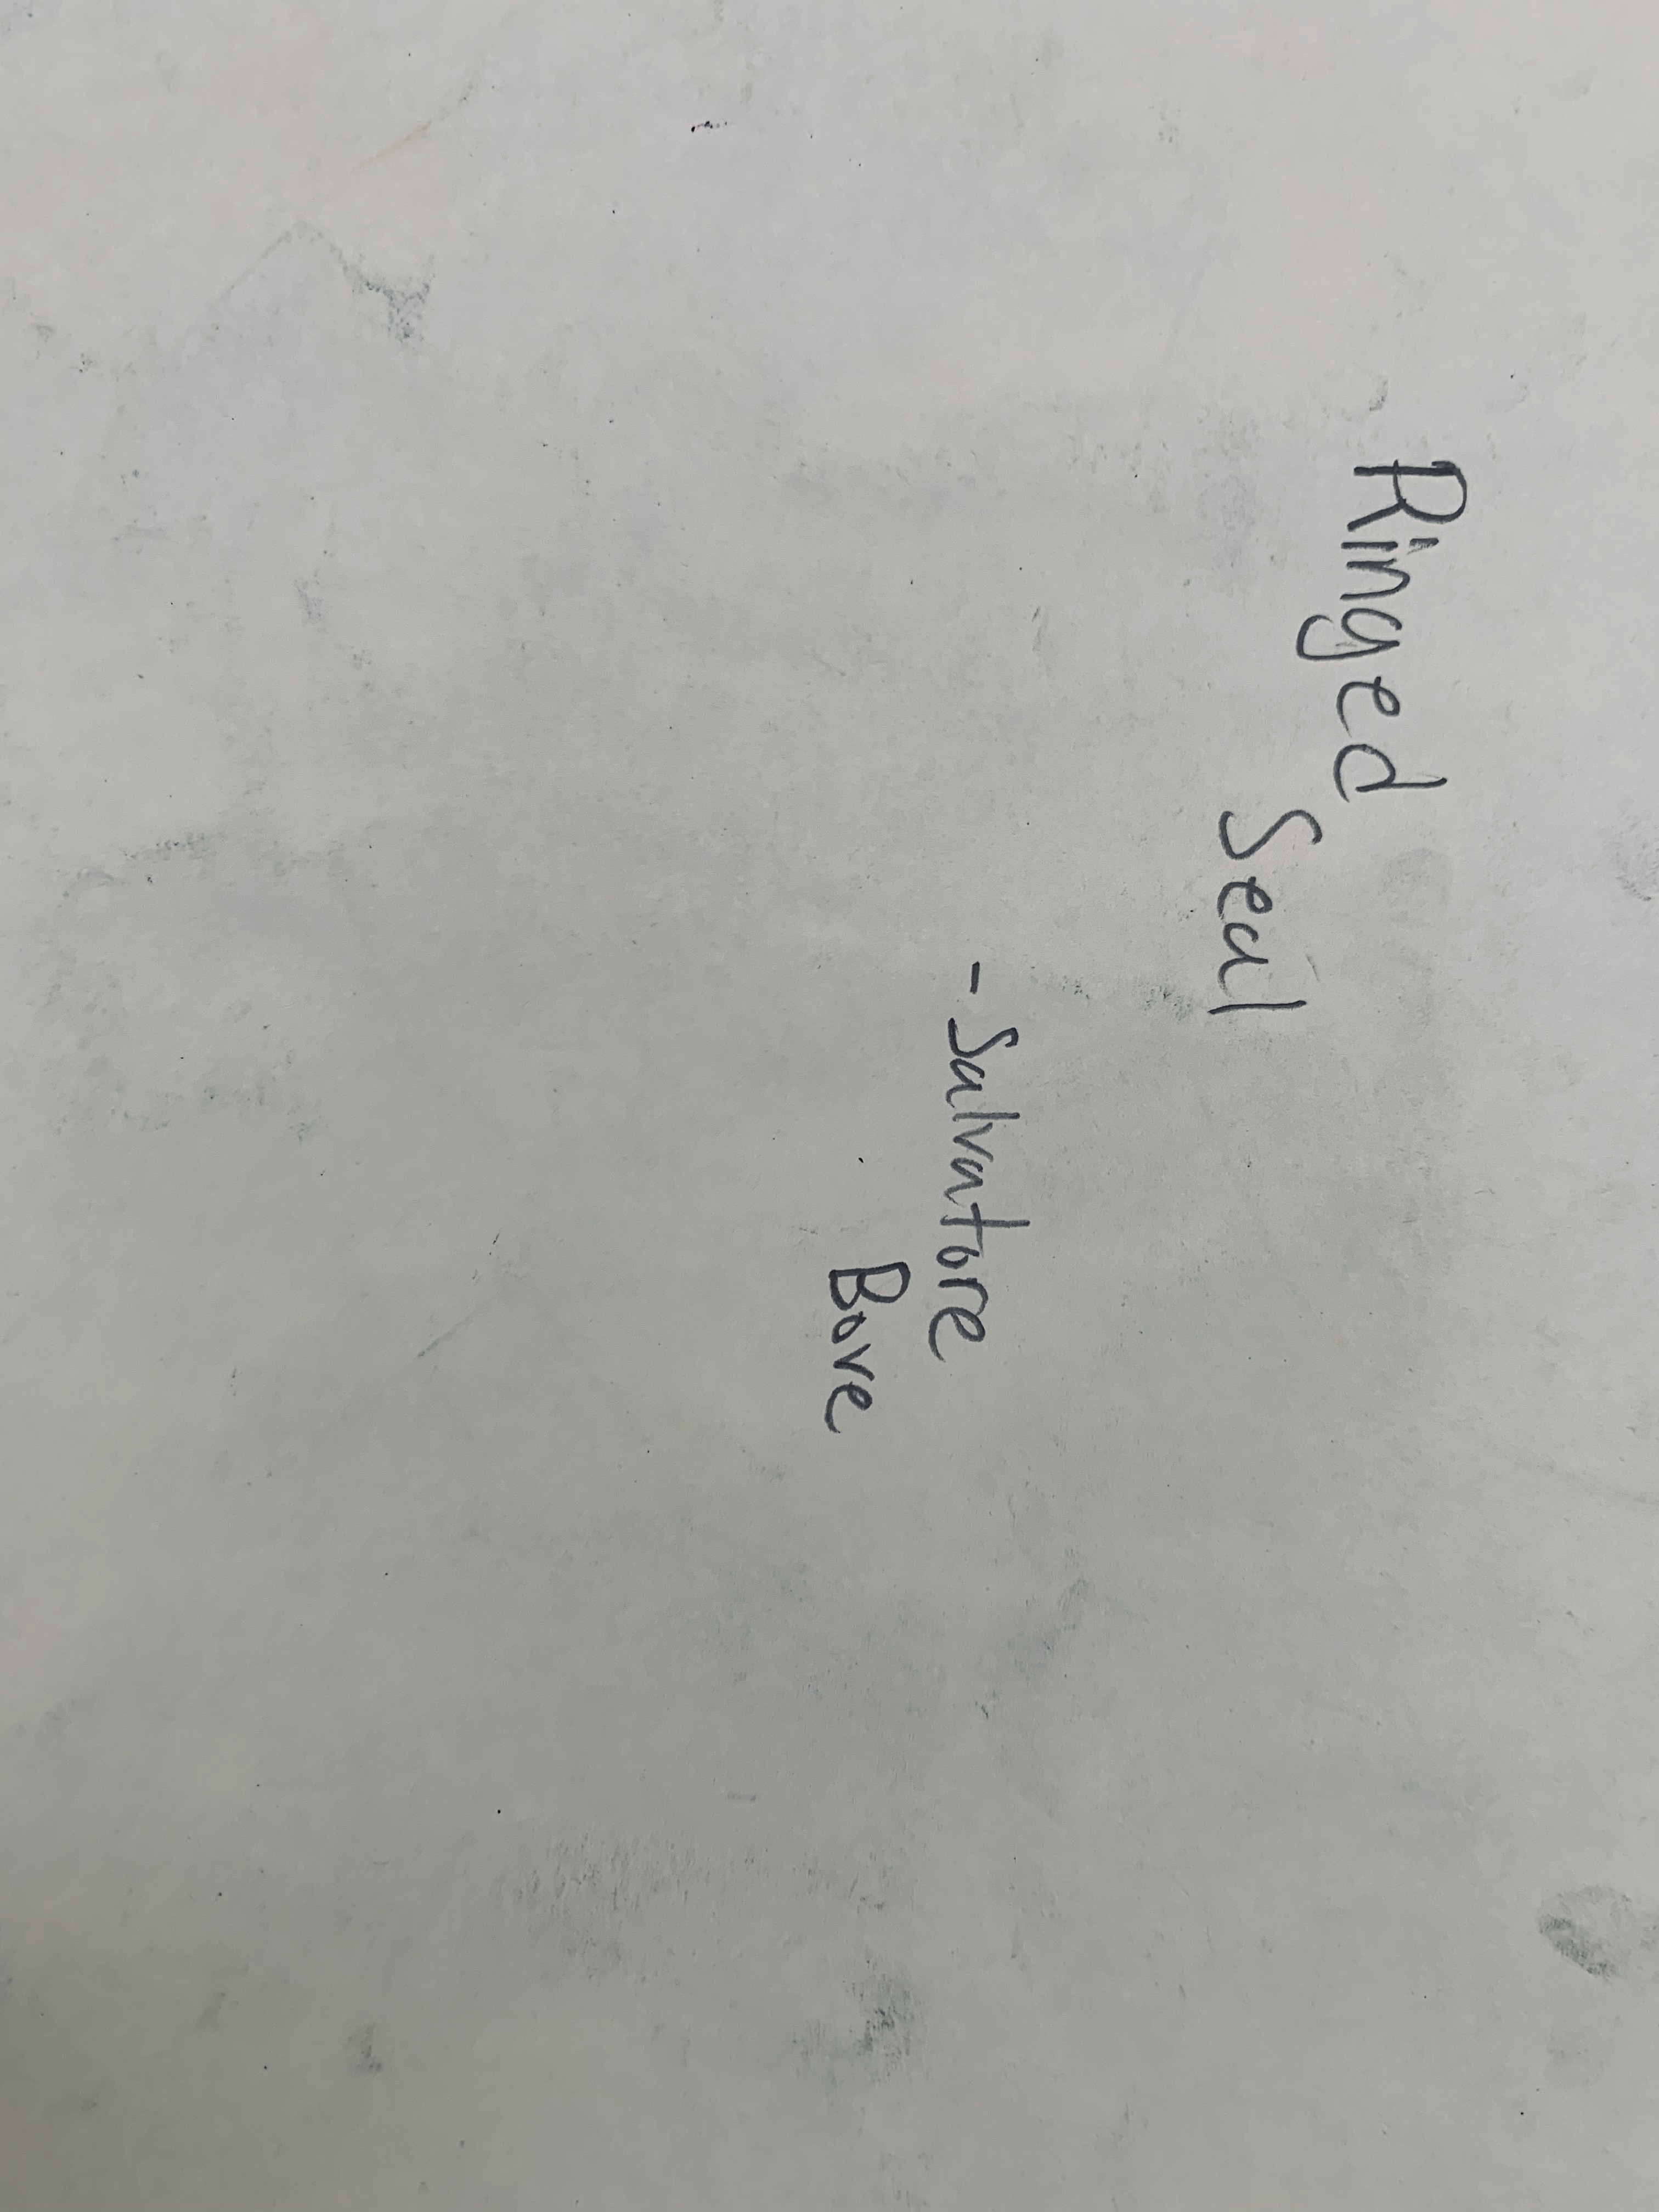 Ringed
Seal
- Salvatore
Bove